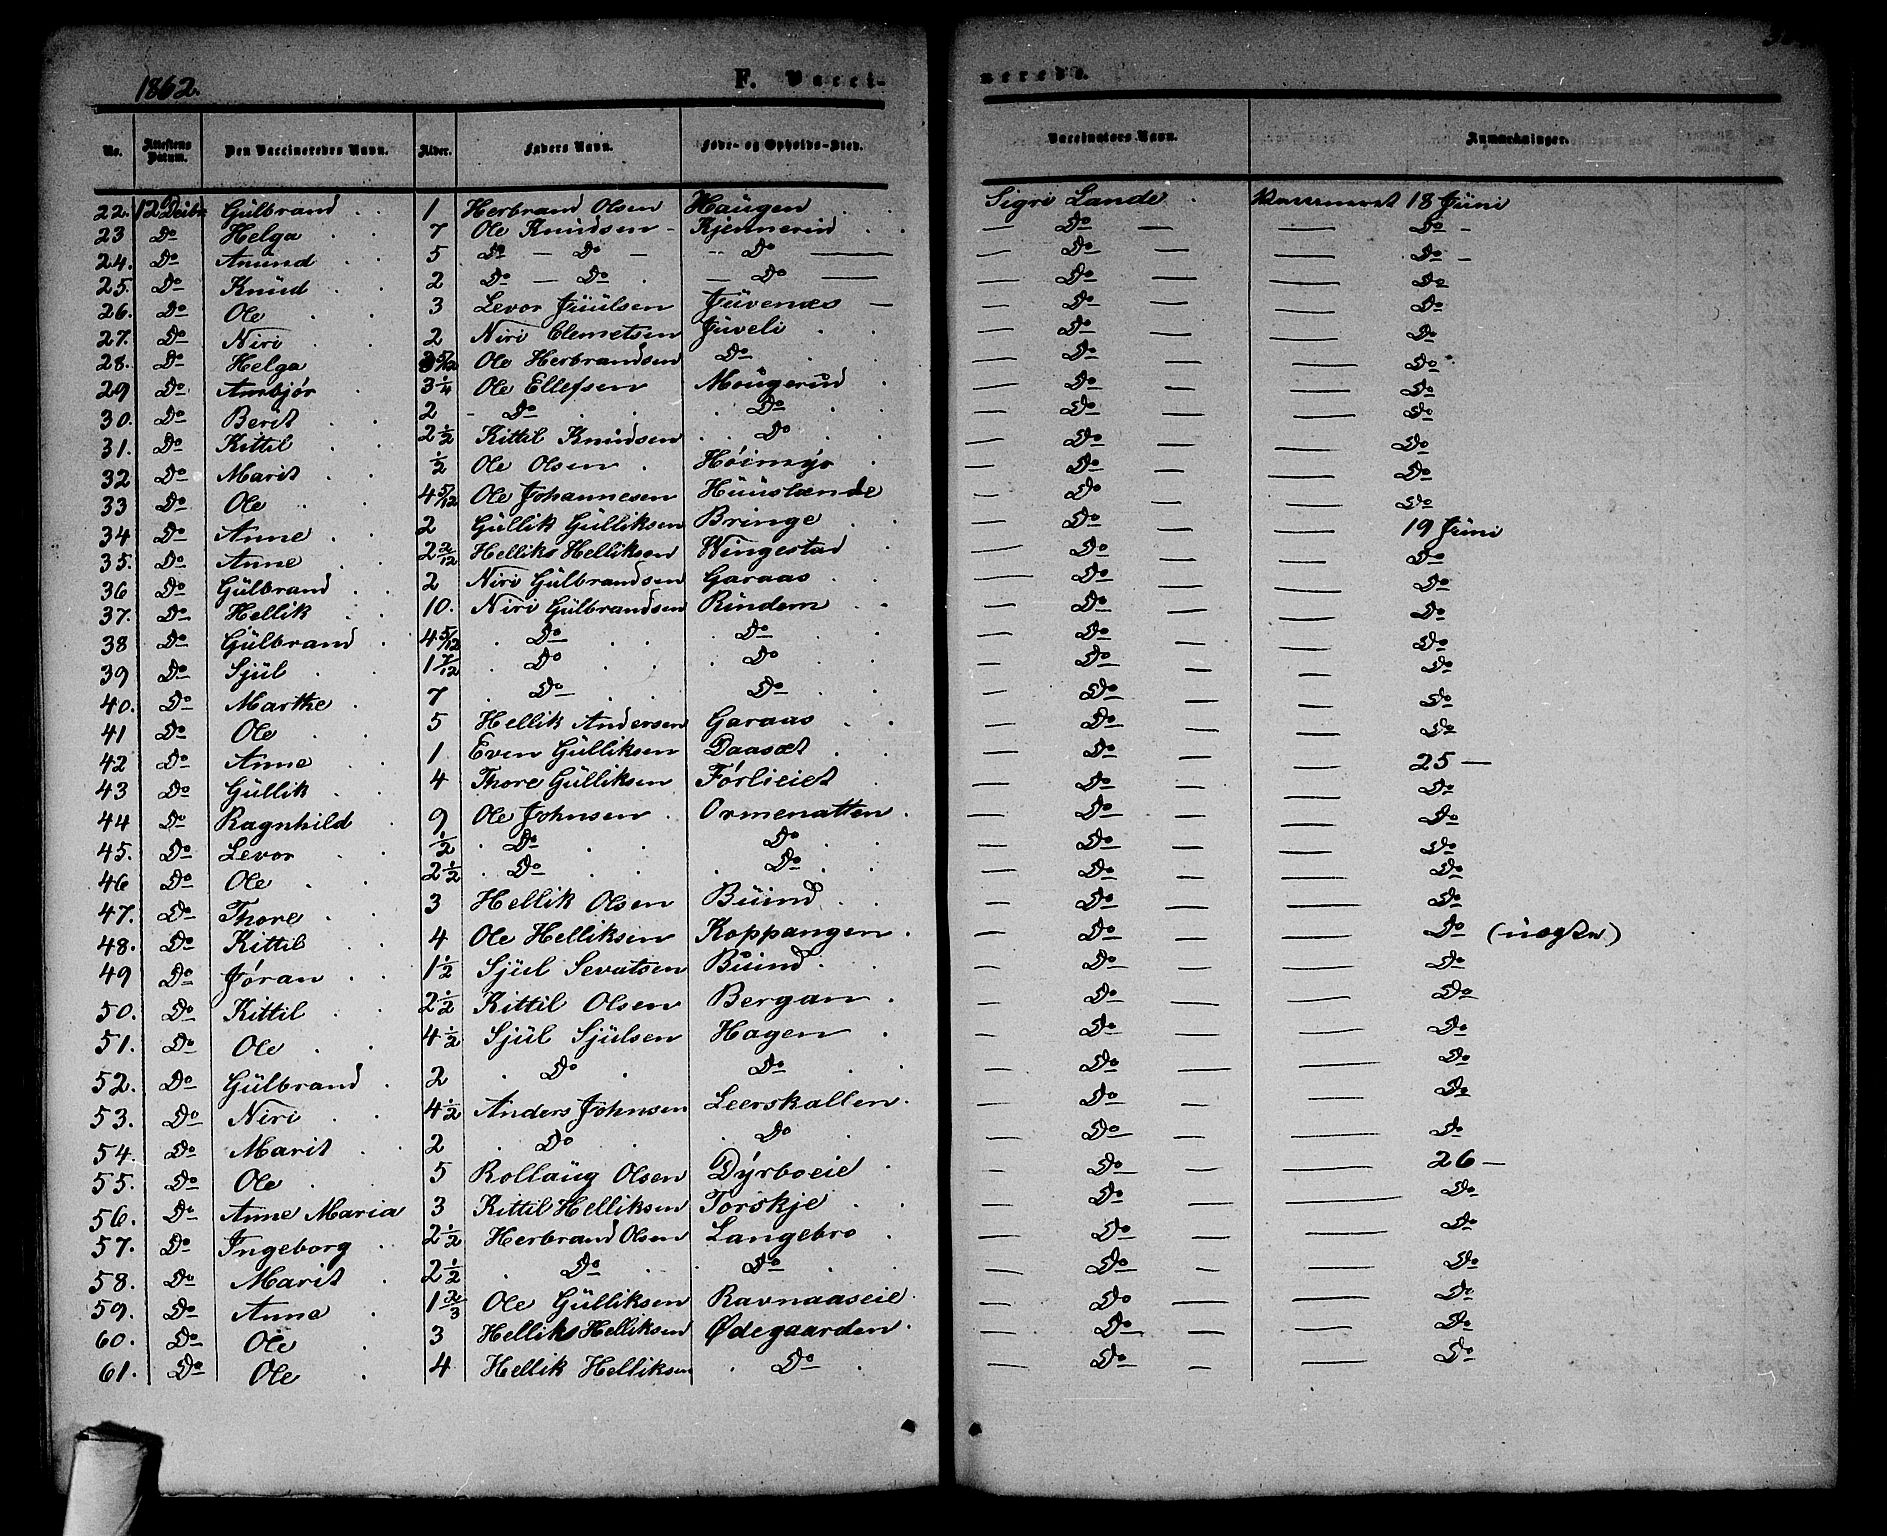 1862.
F. Vacci-
nerede.
No. Attestens Datum. Den Vaccineredes Navn. Alder. Faders Navn. Føde- og Opholds-Sted. Vaccinators Navn. Anmærkninger.
22. 12 Gülbrand 1 Herbrand Olsen Haügen Sigri Lande 18 Jüni
23 Do Helga 7 Ole Knüdsen - — Do — — Do -
24. Do Anünd 5 Do — Do — Do — — Do — — Do -
25. Do Knüd 2 Do — Do — Do — — Do — — Do
26. Do Ole 3 Levor Jüülsen Jüvenæs — — Do — — Do
27. Do Niri 2 Niri Clemetsen Jüveli — Do — — Do
28. Do Helga 5/12 Ole Herbrandsen Do — Do — — Do
29 Do Ansbjør 3 1/4 Ole Ellefsen Moügerüd — Do — — Do
30. Do Berit 2 - Do Do — Do — — Do
31. Do Kittil 2 1/2 Kittil Knüdsen Do — Do — — Do
32 Do Marit 1/2 Ole Olsen Høimyr — Do — — Do
33 Do Ole 4 5/12 Ole Johannesen Hüüslænde — Do — — Do
34 Do Anne 2 Güllik Gülliksen Bringe — Do — — 19 Jüni
35. Do Anne 2 2/12 Helliks Helliksen Wingestad — Do — — Do
36 Do Gülbrand 2 Niri Gülbrandsen Garaas — Do — — Do
37. Do Hellik 10. Niri Gülbrandsen Rindem — Do — — Do
38 Do Gülbrand 4 5/12 Do Do — Do — — Do
39 Do Sjül 1 7/12 Do Do — Do — — Do
40. Do Marthe 7 Do Do — Do — — Do
41 Do Ole 5 Hellik Andersen Garaas — Do — — Do
42 Do Anne 1 Even Gülliksen Daasæt — Do — — 25 —
43 Do Güllik 4 Thore Gülliksen Førlieiet — Do — — Do
44 Do Ragnhild 9 Ole Johnsen Ormenatten — Do — — Do
45. Do Levor 1/2 Do Do — Do — — Do
46 Do Ole 2 1/2 Do Do — Do — — Do
47. Do Thore 3 Hellik Olsen Büind — Do — — Do
48. Do Kittil 4 Ole Helliksen Koppangen — Do — — Do
49 Do Jøran 1 1/2 Sjül Sevatsen Büind — Do — — Do
50. Do Kittil 2 1/2 Kittil Olsen Bergan — Do — — Do
51. Do Ole 4 1/2 Sjül Sjülsen Hagen — Do — — Do
52. Do Gülbrand 2 Do Do — Do — — Do
53. Do Niri 4 1/2 Anders Johnsen Leerskallen — Do — — Do
54. Do Marit 2 Do Do — Do — — Do
55. Do Ole 5 Rollaüg Olsen Dyrboeie — Do — — 26 —
56. Do Anne Maria 3 Kittil Helliksen Torskje — Do — — Do
57. Do Ingeborg 2 1/2 Herbrand Olsen Langebro — Do — — Do
58. Do Marit 2 1/2 Do Do — Do — — Do
59. Do Anne 1 2/3 Ole Gülliksen Ravnaaseie — Do — — Do
60. Do Ole 3 Helliks Helliksen Ødegaarden — Do — — Do
61. Do Ole 4 Hellik Helliksen Do — Do — — Do